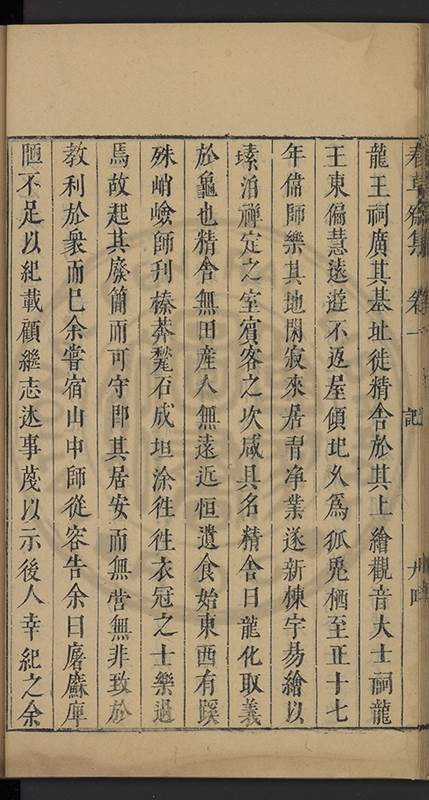 春草齋集 卷一 記
龍王祠廣其基址徒精舍於其上繪觀音大士祠龍
王東偏慧遠遊不返屋傾圯久爲狐兎栖至正十七
年偉師樂其地閑寂來居習净業遂新棟宇易繪以
塐泊禪定之室賓客之次咸具名精舍曰龍化取義
於龜也精舍無田産人無遠近恒遺食始東西有蹊
殊峭嶮師刋榛莽甃石成坦涂徃徃衣冠之士樂過
焉故起其廢簡而可守即其居安而無營無非致於
教利於衆而巳余嘗宿山中師從容告余曰磨蘇庫
陋不足以紀載顧繼志述事蔑以示後人幸紀之余